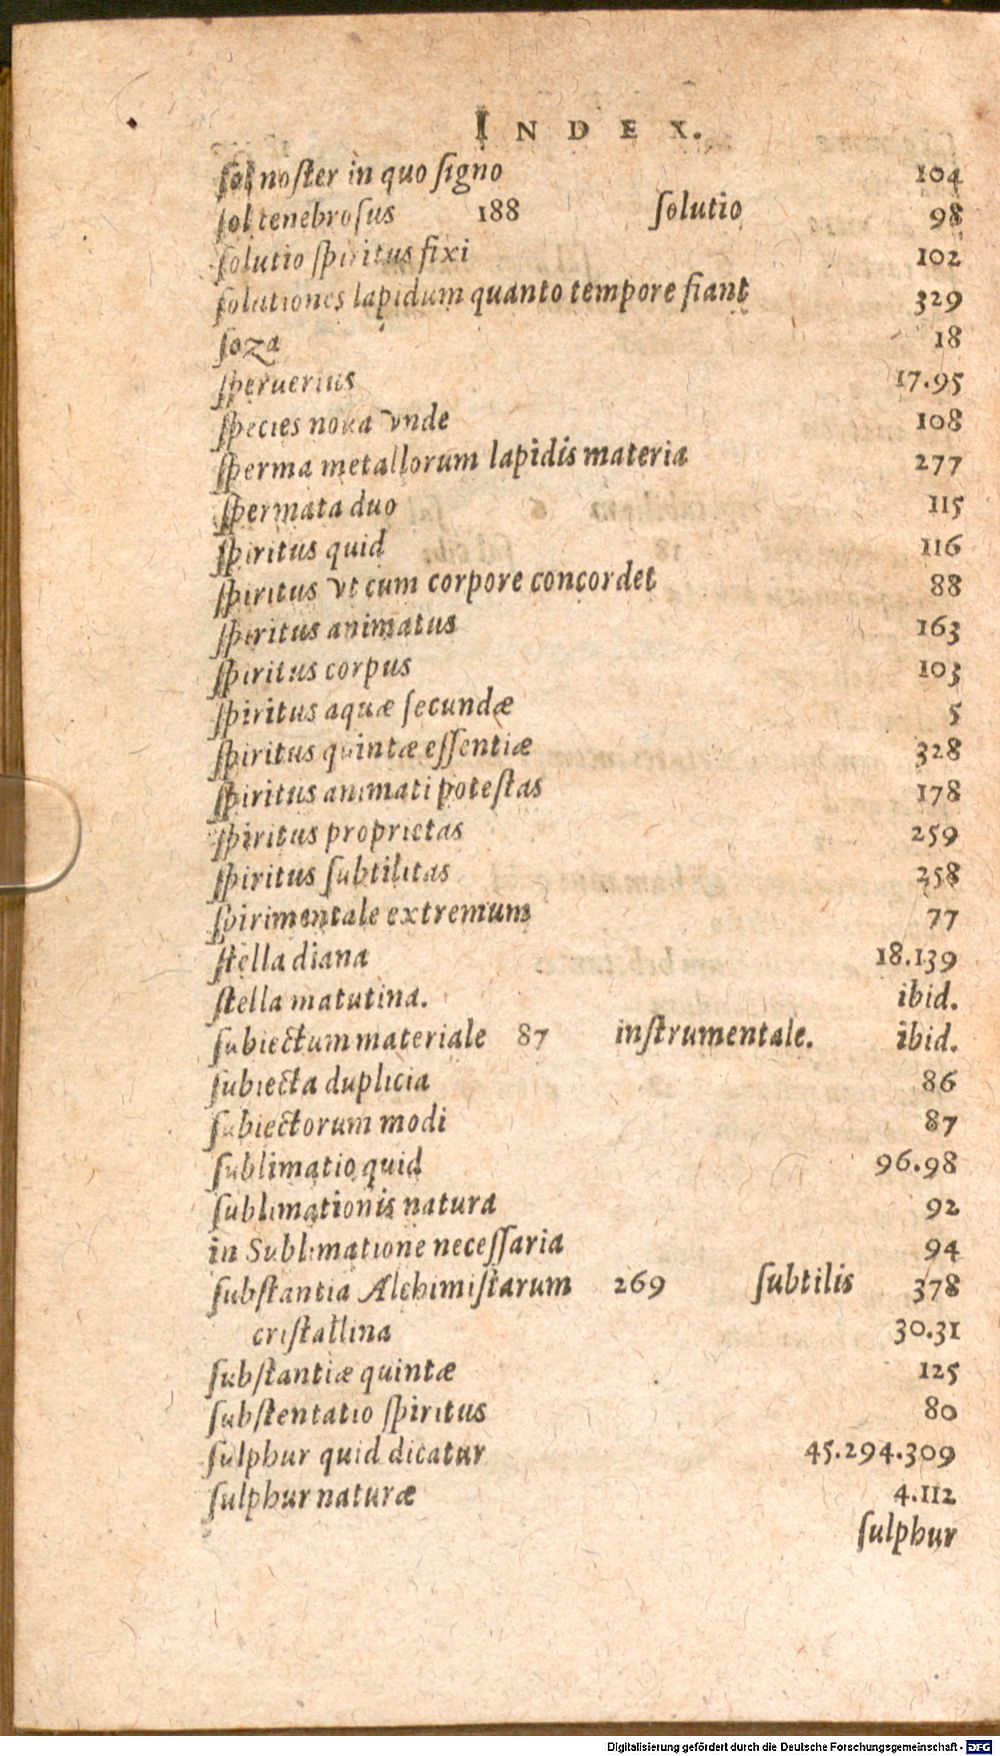 INDEX.
ſol noſter in quo ſigno 104
ſol tenebroſus 188 ſolutio 98
ſolutio ſpiritus fixi 102
ſolutiones lapidum quanto tempore fiant 329
ſoza 18
ſperuerius 17.95
ſpecies noua vnde 108
ſperma metallorum lapidis materia 277
ſpermata duo 115
ſpiritus quid 116
ſpiritus vt cum corpore concordet 88
ſpiritus animatus 163
ſpiritus corpus 103
ſpiritus aquæ ſecundæ 5
ſpiritus quintæ eſſentiæ 328
ſpiritus animati poteſtas 178
ſpiritus proprietas 259
ſpiritus ſubtilitas 258
ſpirimentale extremum 77
ſtella diana 18.139
ſtella matutina. ibid.
ſubiectum materiale 87 inſtrumentale. ibid.
ſubiecta duplicia 86
ſubiectorum modi 87
ſublimatio quid 96.98
ſublimationis natura 92
in Sublimatione neceſſaria 94
ſubſtantia Alchimiſtarum 269 ſubtilis 378
criſtallina 30.31
ſubſtantiæ quintæ 125
ſubſtentatio ſpiritus 80
ſulphur quid dicatur 45.294.309
ſulphur naturæ 4.112
ſulphur
Digitalisierung gefördert durch die Deutsche Forschungsgemeinschaft - DFG